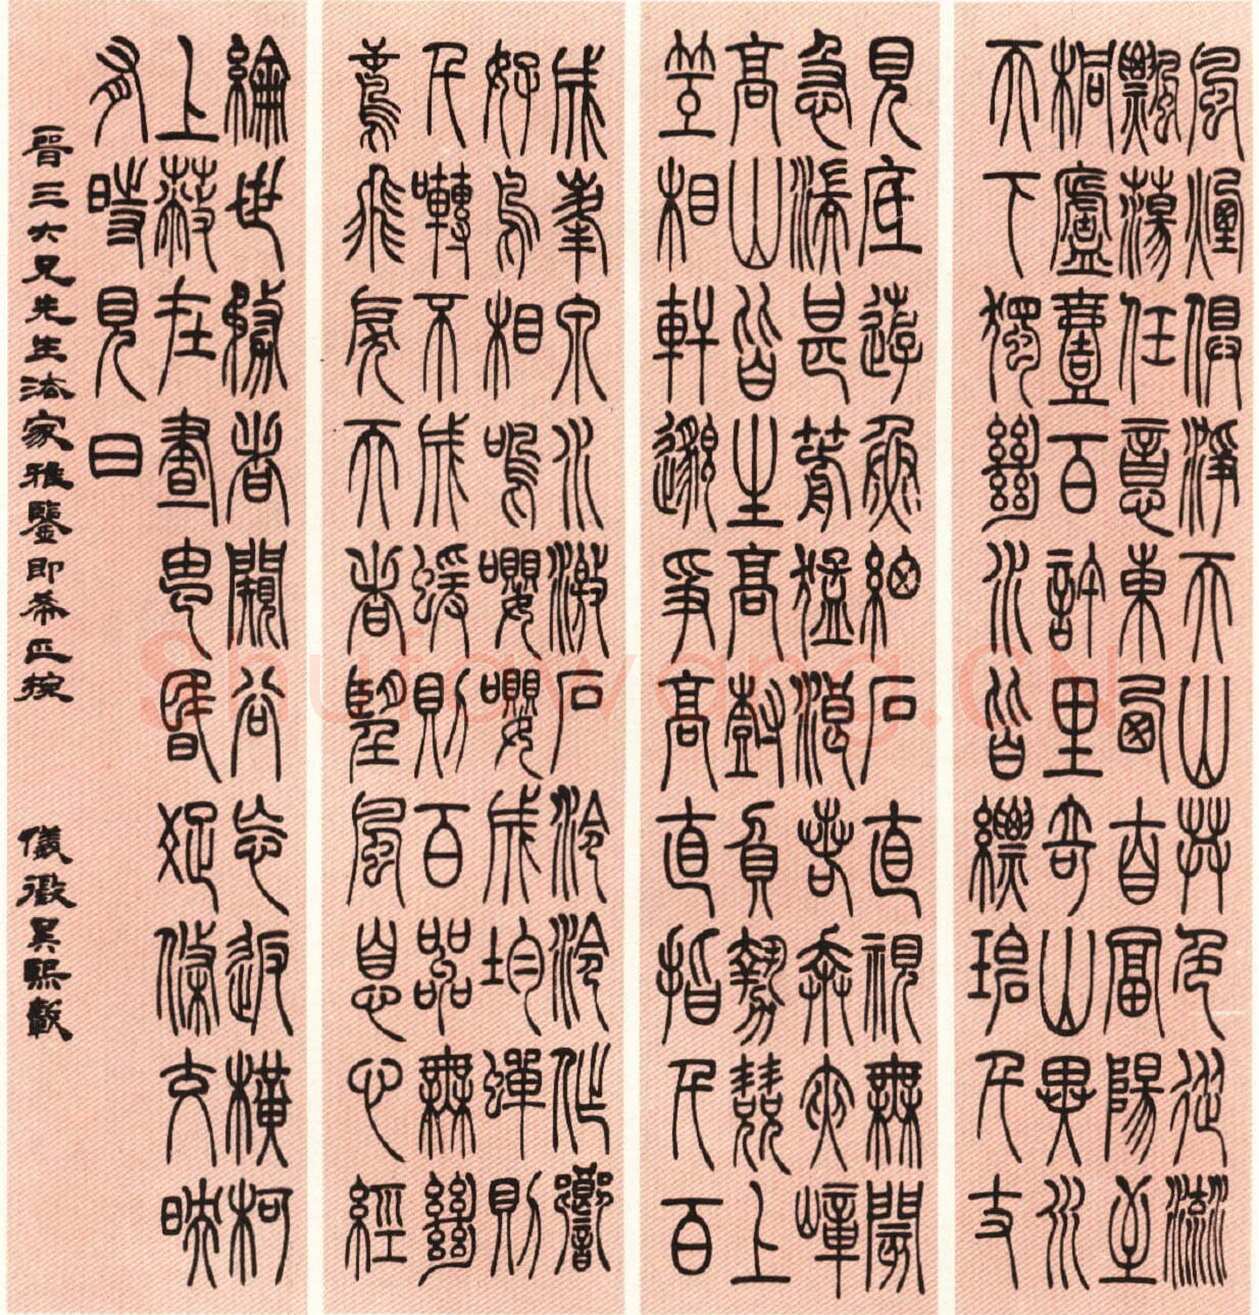 風煙俱淨天山共色從流
飄蕩任意東西自富陽至
桐廬壹百許里奇山異水
天下獨絕水皆縹碧千丈
見底遊魚細石直視無閡
急湍甚箭猛浪若奔夾嶂
高山皆生高樹負勢競上
互相軒邈爭高直指千百
成峯泉水激石泠泠作響
好鳥相鳴嚶嚶成均蟬則
千囀不成蝯則百嘂無絕
鳶飛戾天者望風息心經
綸世務者闚谷忘返橫柯
上蔽在晝昏疏條交映
有時見日
晉三大兄先生法家雅鑒即希正捥 儀徵吳熙載
Shufawang.CN